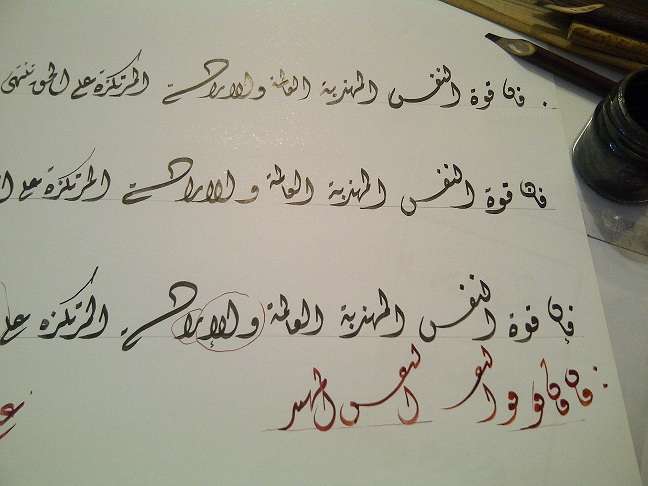 فان قوة النفس المهذبة العالمة والارادة المرتكزة على الحق تنتهي
فان قوة النفس المهذبة العالمة والارادة المرتكزة على
فإن قوة النفس المهذبة العالمة والإرادة المرتكزه على
فان فان قو و النفس